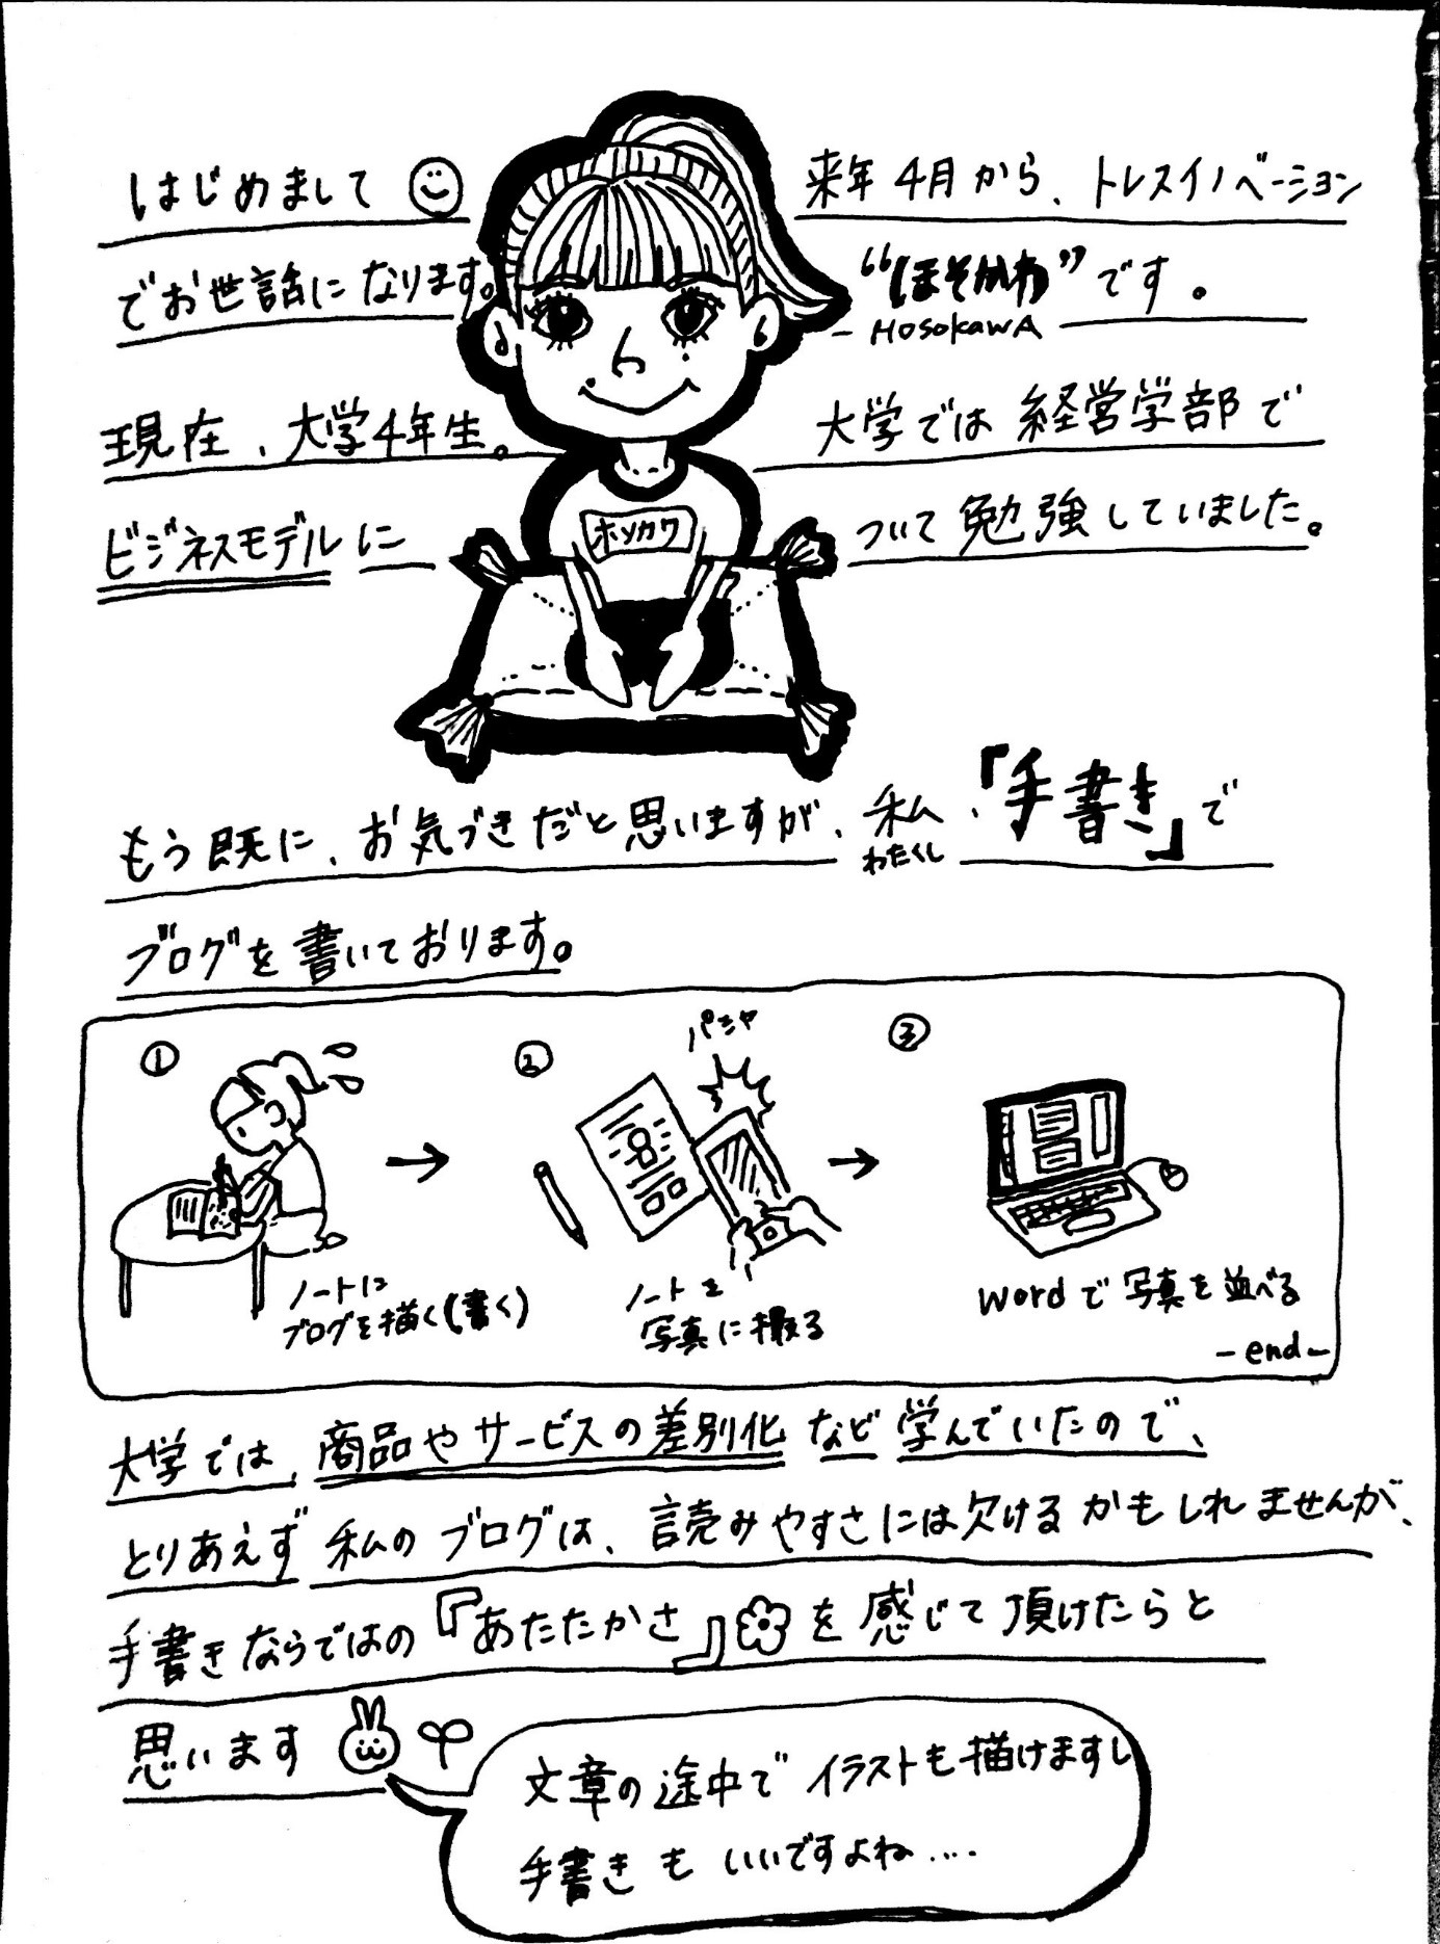 はじめまして 来年4月から、トレスイノベーション
でお世話になります。 “ほそかわ”です。
HOSOKAWA
現在、大学4年生。 大学では経営学部で
ビジネスモデルに ついて勉強していました。
ホソカワ
もう既に、お気づきだと思いますが、私、『手書き』で
わたくし
ブログを書いております。
① ② パシャ ③
ノートに
ブログを描く(書く)
ノートを
写真に撮る
wordで写真を並べる
-end-
大学では、商品やサービスの差別化など学んでいたので、
とりあえず私のブログは、読みやすさには欠けるかもしれませんが、
手書きならではの『あたたかさ』を感じて頂けたらと
思います
文章の途中でイラストも描けますし
手書きもいいですよね....